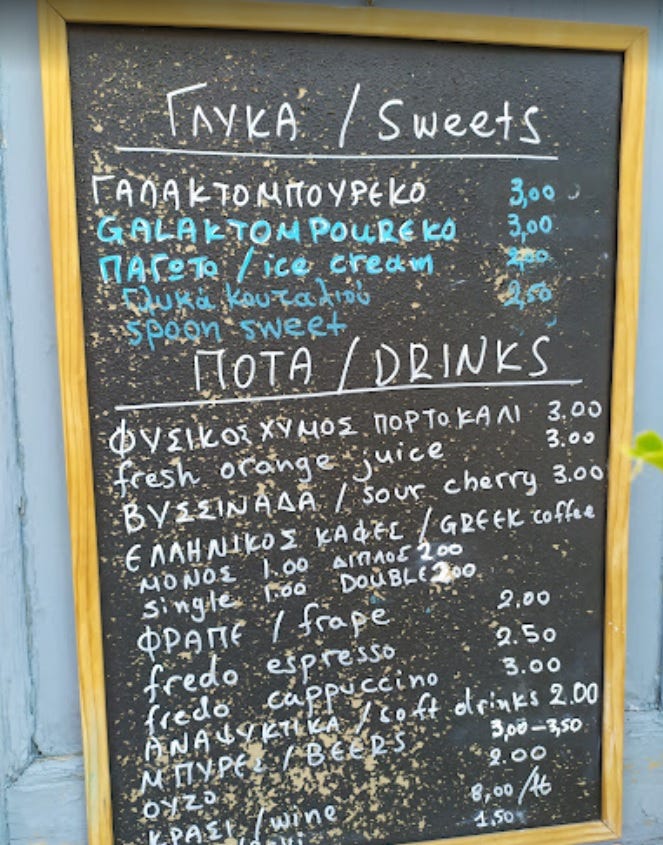 ΓΛΥΚΑ / Sweets
ΓΑΛΑΚΤΟΜΠΟΥΡΕΚΟ 3,00
GALAKTOMPOUREKO 3,00
ΠΑΓΩΤΟ / ice cream
Γλυκά κουταλιού 2,50
spoon sweet
ΠΟΤΑ / DRINKS
ΦΥΣΙΚΟΣ ΧΥΜΟΣ ΠΟΡΤΟΚΑΛΙ 3.00
fresh orange juice 3.00
ΒΥΣΣΙΝΑΔΑ / sour cherry 3.00
ΕΛΛΗΝΙΚΟΣ ΚΑΦΕΣ / GREEK coffee
ΜΟΝΟΣ 1.00 ΔΙΠΛΟΣ 2.00
single 1.00 DOUBLE 2.00
ΦΡΑΠΕ / frape 2.00
fredo espresso 2.50
fredo cappuccino 3.00
ΑΝΑΨΥΚΤΙΚΑ / soft drinks 2.00
ΜΠΥΡΕΣ / BEERS 3,00-3,50
ΟΥΖΟ 2.00
ΚΡΑΣΙ / wine 8,00 /λt
1,50